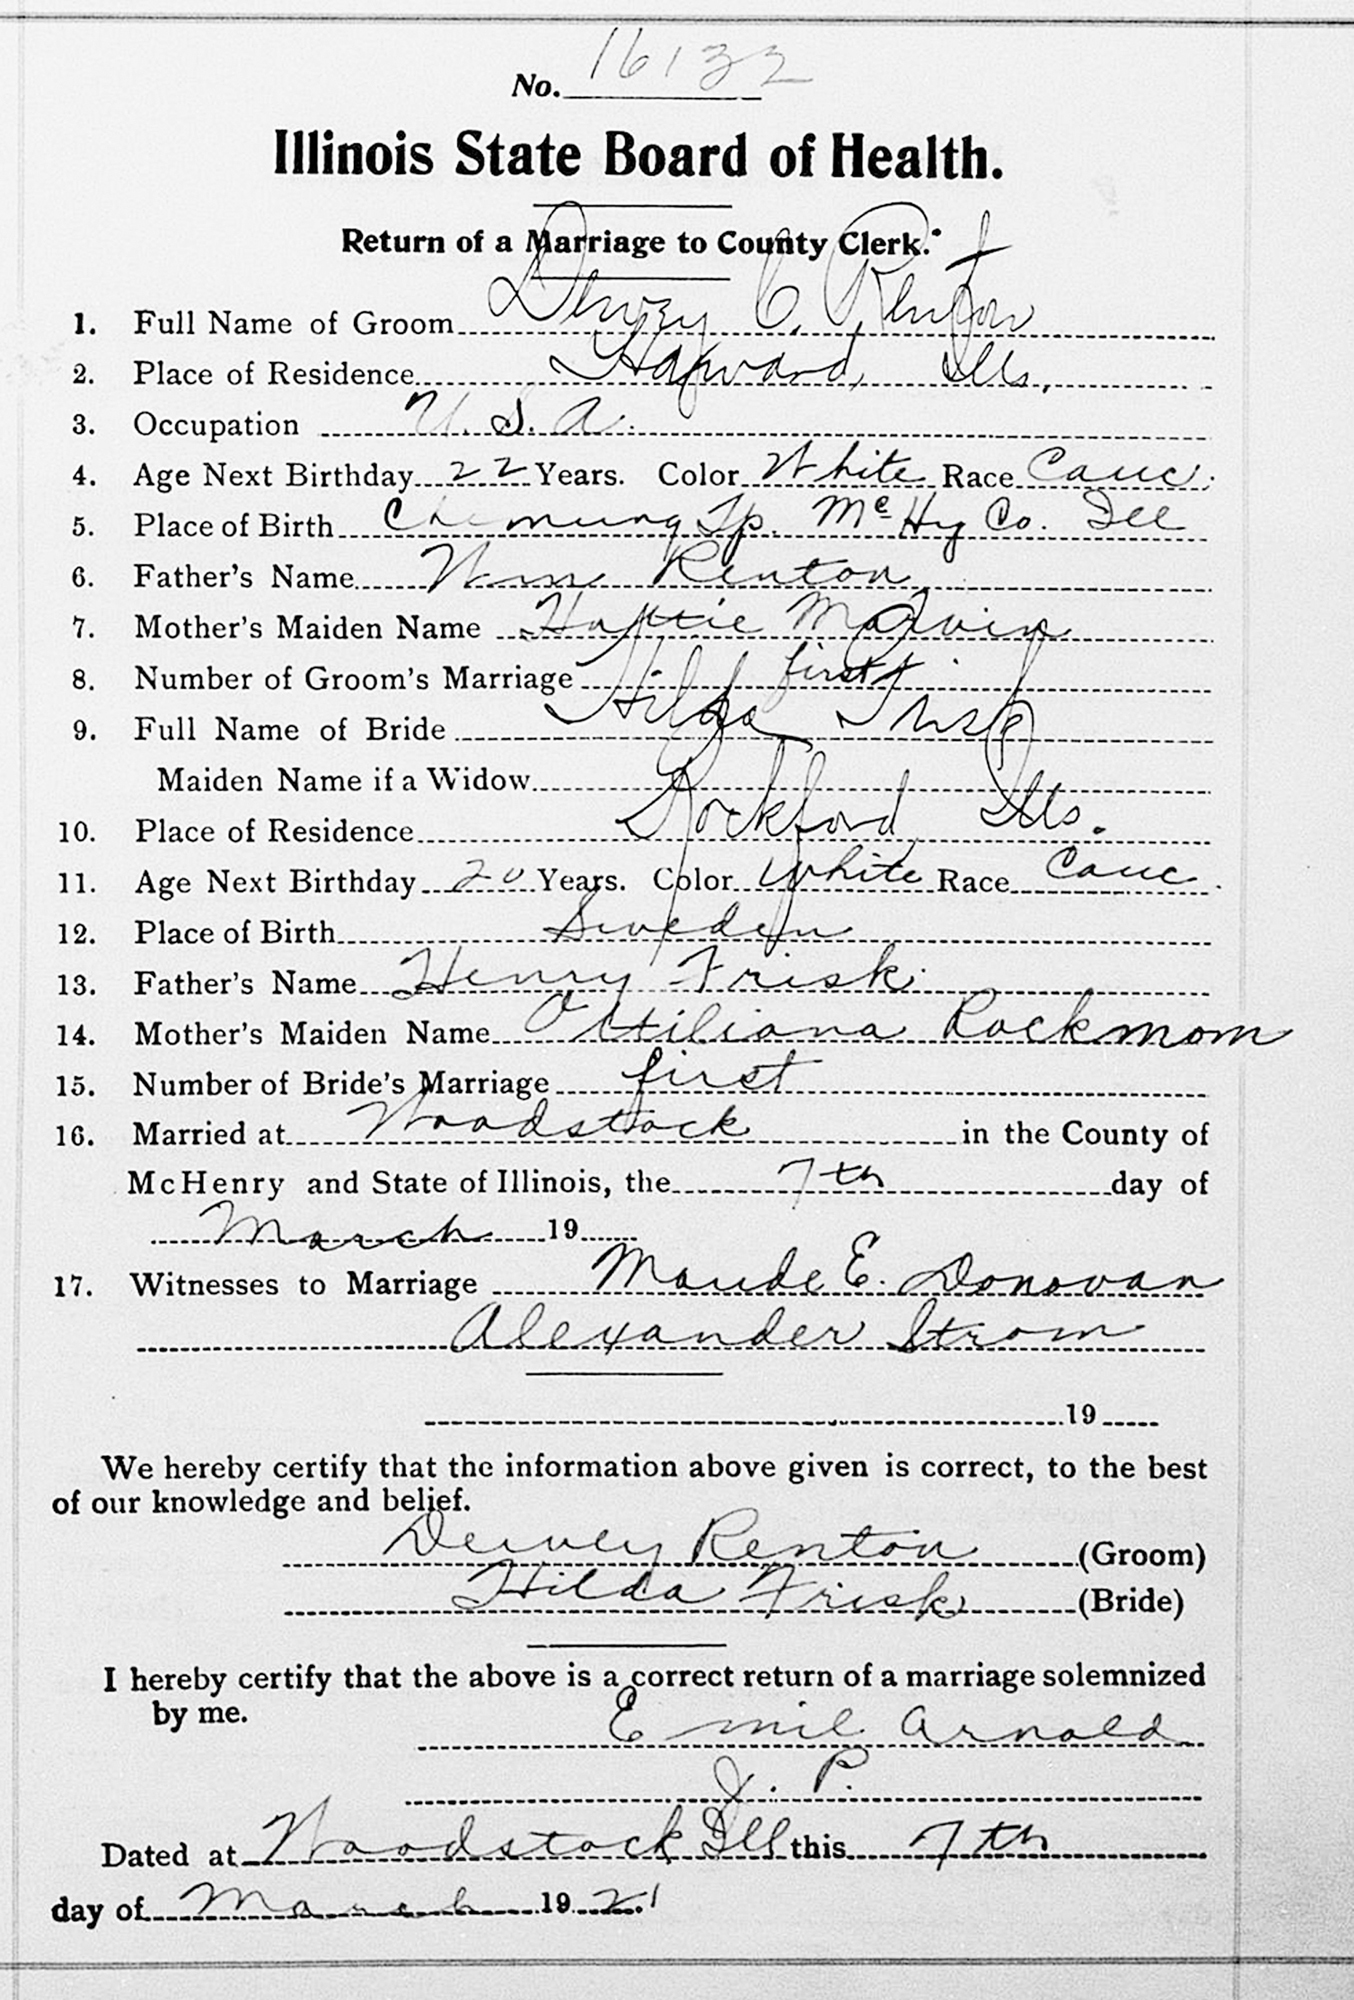 No. 16132
Illinois State Board of Health.
Return of a Marriage to County Clerk.
1. Full Name of Groom Dewey C. Renton
2. Place of Residence Harvard, Ills.,
3. Occupation U. S. A.
4. Age Next Birthday 22 Years. Color White Race Cauc.
5. Place of Birth Chemung Tp. McHy Co. Ill
6. Father's Name Wm Renton
7. Mother's Maiden Name Hattie Marvin
8. Number of Groom's Marriage first
9. Full Name of Bride Hilda Frisk
Maiden Name if a Widow
10. Place of Residence Rockford, Ills.
11. Age Next Birthday 20 Years. Color White Race Cauc.
12. Place of Birth Sweden
13. Father's Name Henry Frisk
14. Mother's Maiden Name Ottiliana Rockmom
15. Number of Bride's Marriage first
16. Married at Woodstock in the County of
McHenry and State of Illinois, the 7th day of
March 19
17. Witnesses to Marriage Maude E. Donovan
Alexander Strom
19
We hereby certify that the information above given is correct, to the best
of our knowledge and belief.
Dewey Renton (Groom)
Hilda Frisk (Bride)
I hereby certify that the above is a correct return of a marriage solemnized
by me.
Emil Arnold
J. P.
Dated at Woodstock Ill this 7th
day of March 1921